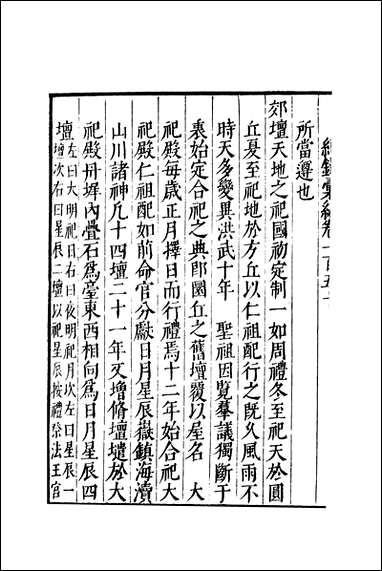 所當遵也
郊壇天地之祀國初定制一如周禮冬至祀天於圜
丘夏至祀地於方丘以仁祖配行之既久風雨不
時天多變異洪武十年 聖祖因覽羣議獨斷于
裏始定合祀之典即圜丘之舊壇覆以屋名 大
祀殿每歲正月擇日而行禮焉十二年始合祀大
祀殿仁祖配如前命官分獻日月星辰嶽鎮海瀆
山川諸神凡十四壇二十一年又增脩壇壝於大
祀殿丹墀內疊石爲臺東西相向爲日月星辰四
壇左曰大明祀日右曰夜明祀月次左曰星辰一
壇次右曰星辰二壇以祀星辰按禮祭法王宮